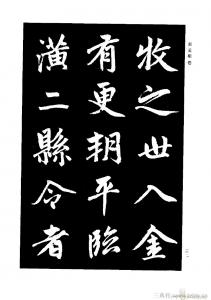 牧之世入金
有更朝平臨
潢二縣令者